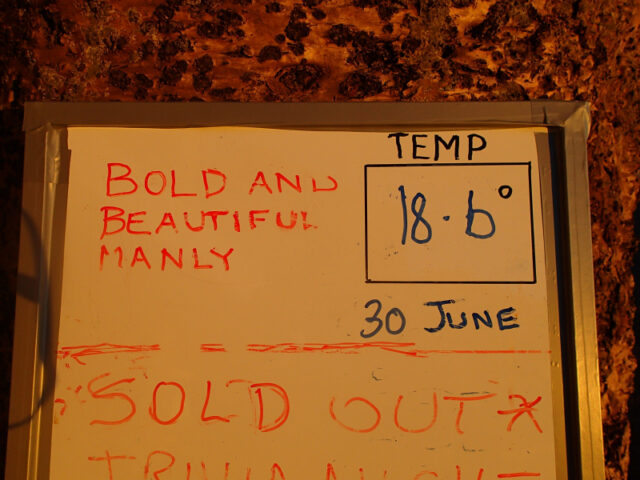 TEMP
BOLD AND
BEAUTIFUL
MANLY
18.6°
30 JUNE
SOLD OUT*
TRIVIA